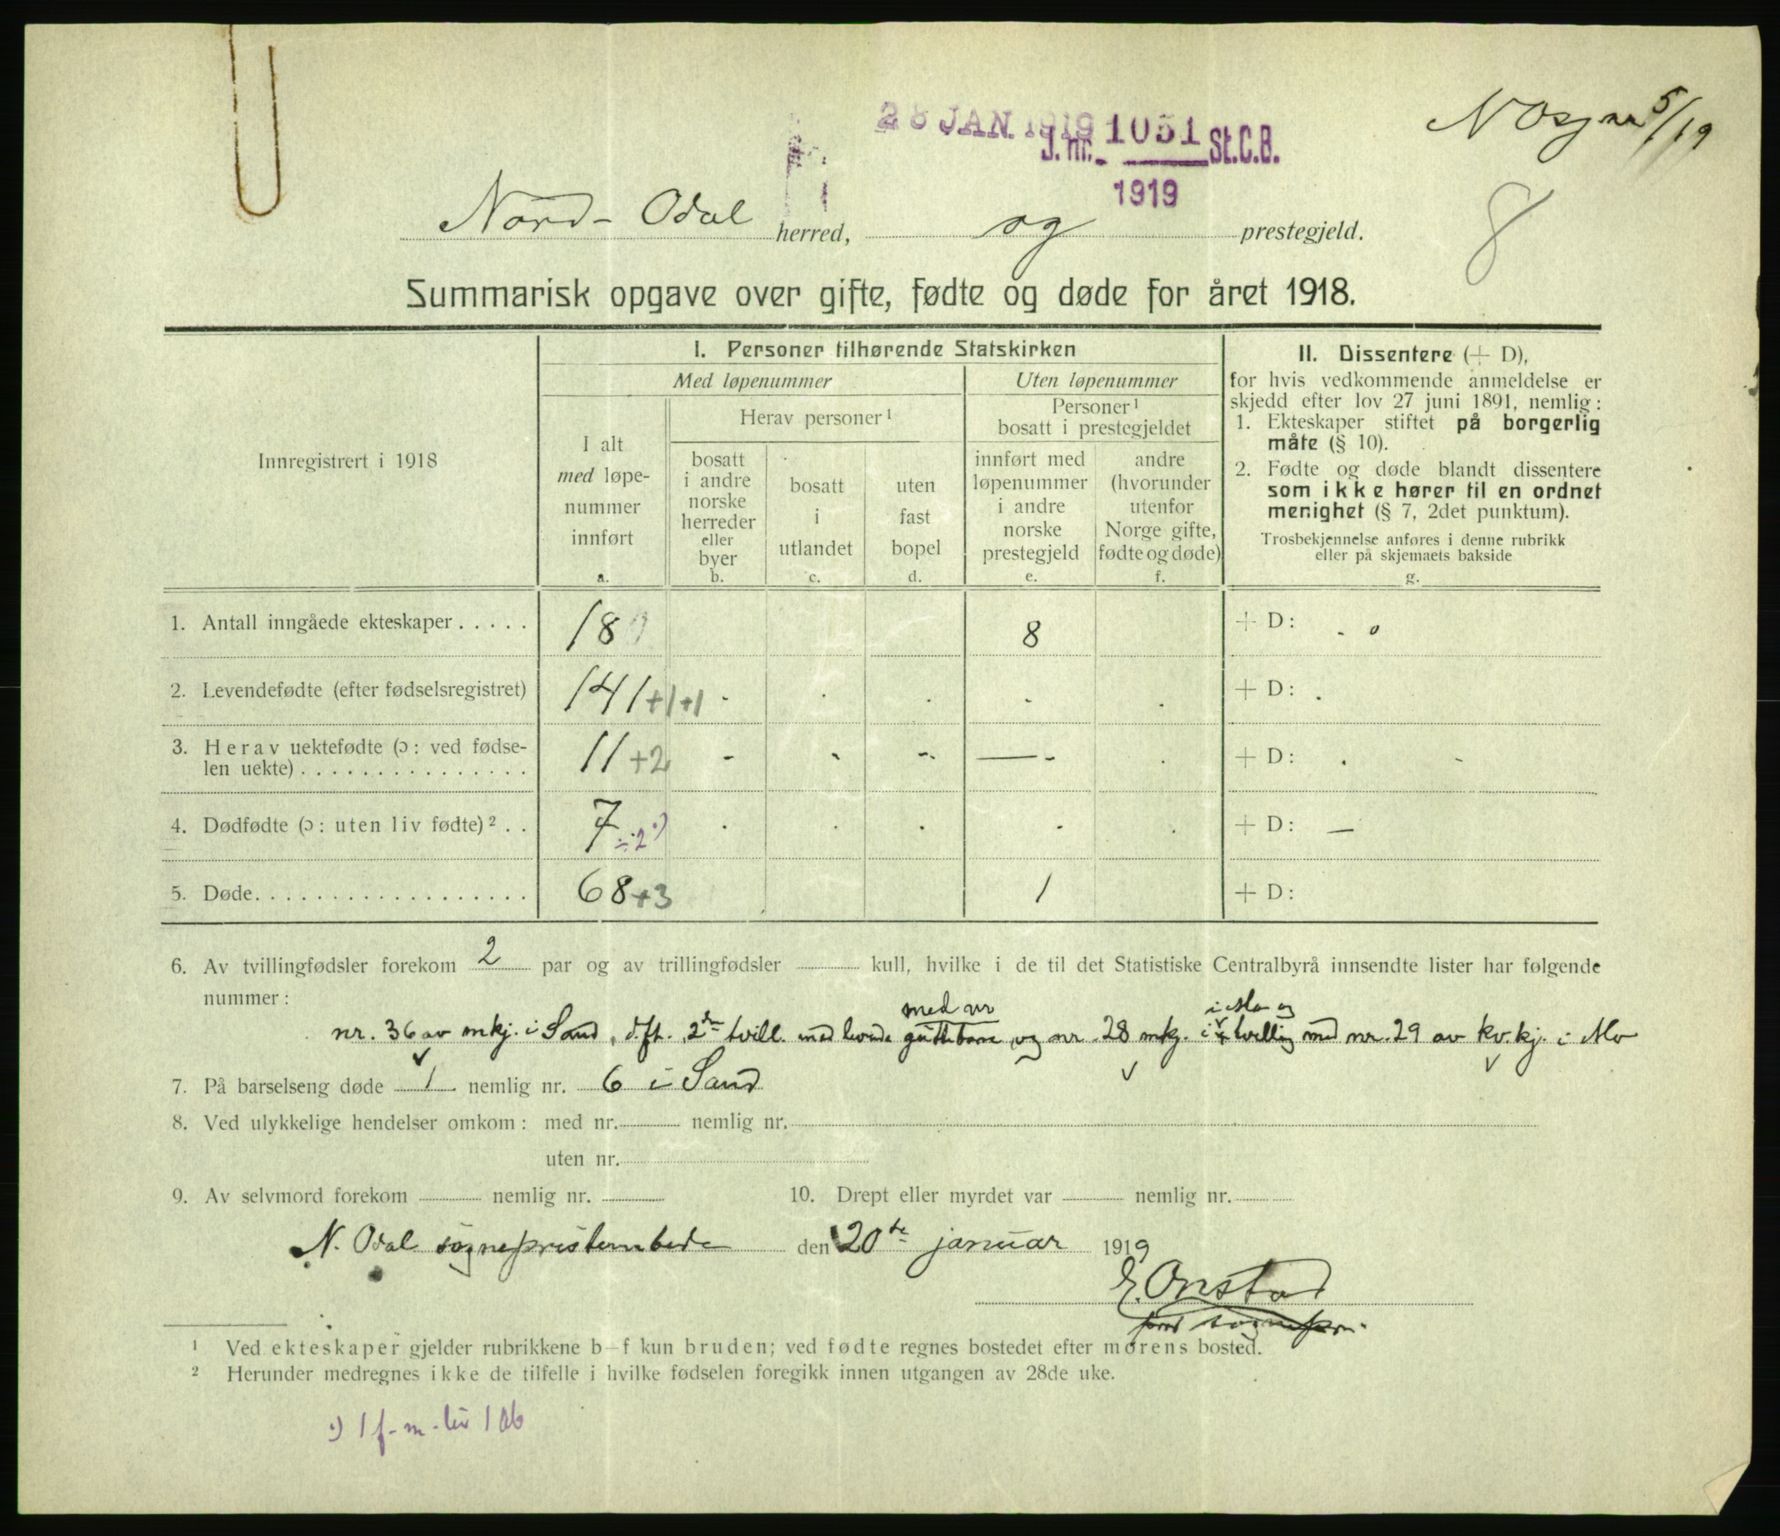 28 JAN 1919
J. nr. 1051 St.C.B.
1919
5/19
8
Nord-Odal herred, og prestegjeld.
Summarisk opgave over gifte, fødte og døde for året 1918.
Innregistrert i 1918
I. Personer tilhørende Statskirken
Med løpenummer
Uten løpenummer
I alt
med løpe-
nummer
innført
a.
Herav personer¹
bosatt
i andre
norske
herreder
eller
byer
b.
bosatt
i
utlandet
c.
uten
fast
bopel
d.
Personer¹
bosatt i prestegjeldet
innført med
løpenummer
i andre
norske
prestegjeld
e.
andre
(hvorunder
utenfor
Norge gifte,
fødte og døde)
f.
II. Dissentere (+ D),
for hvis vedkommende anmeldelse er
skjedd efter lov 27 juni 1891, nemlig:
1. Ekteskaper stiftet på borgerlig
måte (§ 10).
2. Fødte og døde blandt dissentere
som ikke hører til en ordnet
menighet (§ 7, 2det punktum).
Trosbekjennelse anføres i denne rubrikk
eller på skjemaets bakside
g.
1. Antall inngåede ekteskaper ..... 18 8 + D: - 0
2. Levendefødte (efter fødselsregistret) 141 +1+1 - . . . . + D: .
3. Herav uektefødte (ɔ: ved fødse-
len uekte) ............... 11 +2 - - - — - . + D: . -
4. Dødfødte (ɔ: uten liv fødte)² .. 7 ÷2 ·) . . . . . + D: —
5. Døde.................. 68 +3 1 + D:
6. Av tvillingfødsler forekom 2 par og av trillingfødsler kull, hvilke i de til det Statistiske Centralbyrå innsendte lister har følgende
nummer:
med nr i Mo og
nr. 36 av mkj. i Sand, d.ft. 2de tvill. med levende guttebarn, og nr. 28 mkj. i tvilling med nr. 29 av kv.kj. i Mo
7. På barselseng døde 1 nemlig nr. 6 i Sand
8. Ved ulykkelige hendelser omkom: med nr. nemlig nr.
uten nr.
9. Av selvmord forekom nemlig nr. 10. Drept eller myrdet var nemlig nr.
N. Odal sogneprestembede den 20de januar 1919
E. Onstad
sognepr.
¹ Ved ekteskaper gjelder rubrikkene b–f kun bruden; ved fødte regnes bostedet efter morens bosted.
² Herunder medregnes ikke de tilfelle i hvilke fødselen foregikk innen utgangen av 28de uke.
·) 1 f. m. liv 1 ab